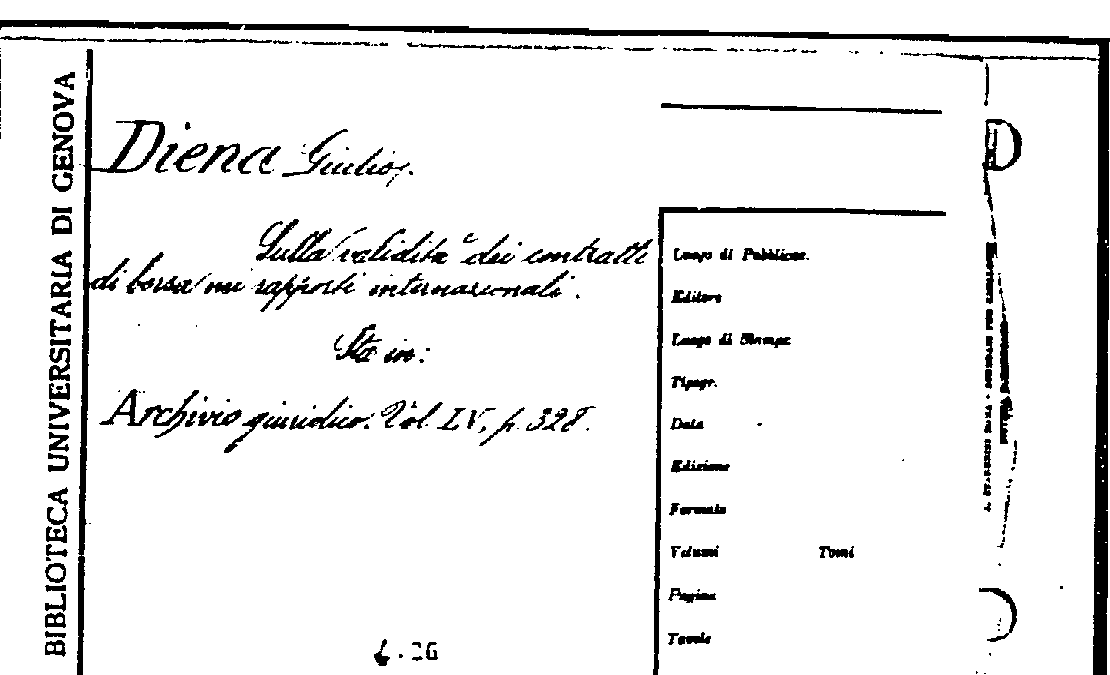 BIBLIOTECA UNIVERSITARIA DI GENOVA
Diena Giulio.
Sulla validità dei contratti
di borsa nei rapporti internazionali.
Sta in:
Archivio giuridico. Vol. LV, p. 328.
Luogo di Pubblicaz.
Editore
Luogo di Stampa
Tipogr.
Data
Edizione
Formato
Volumi Tomi
Pagine
Tavole